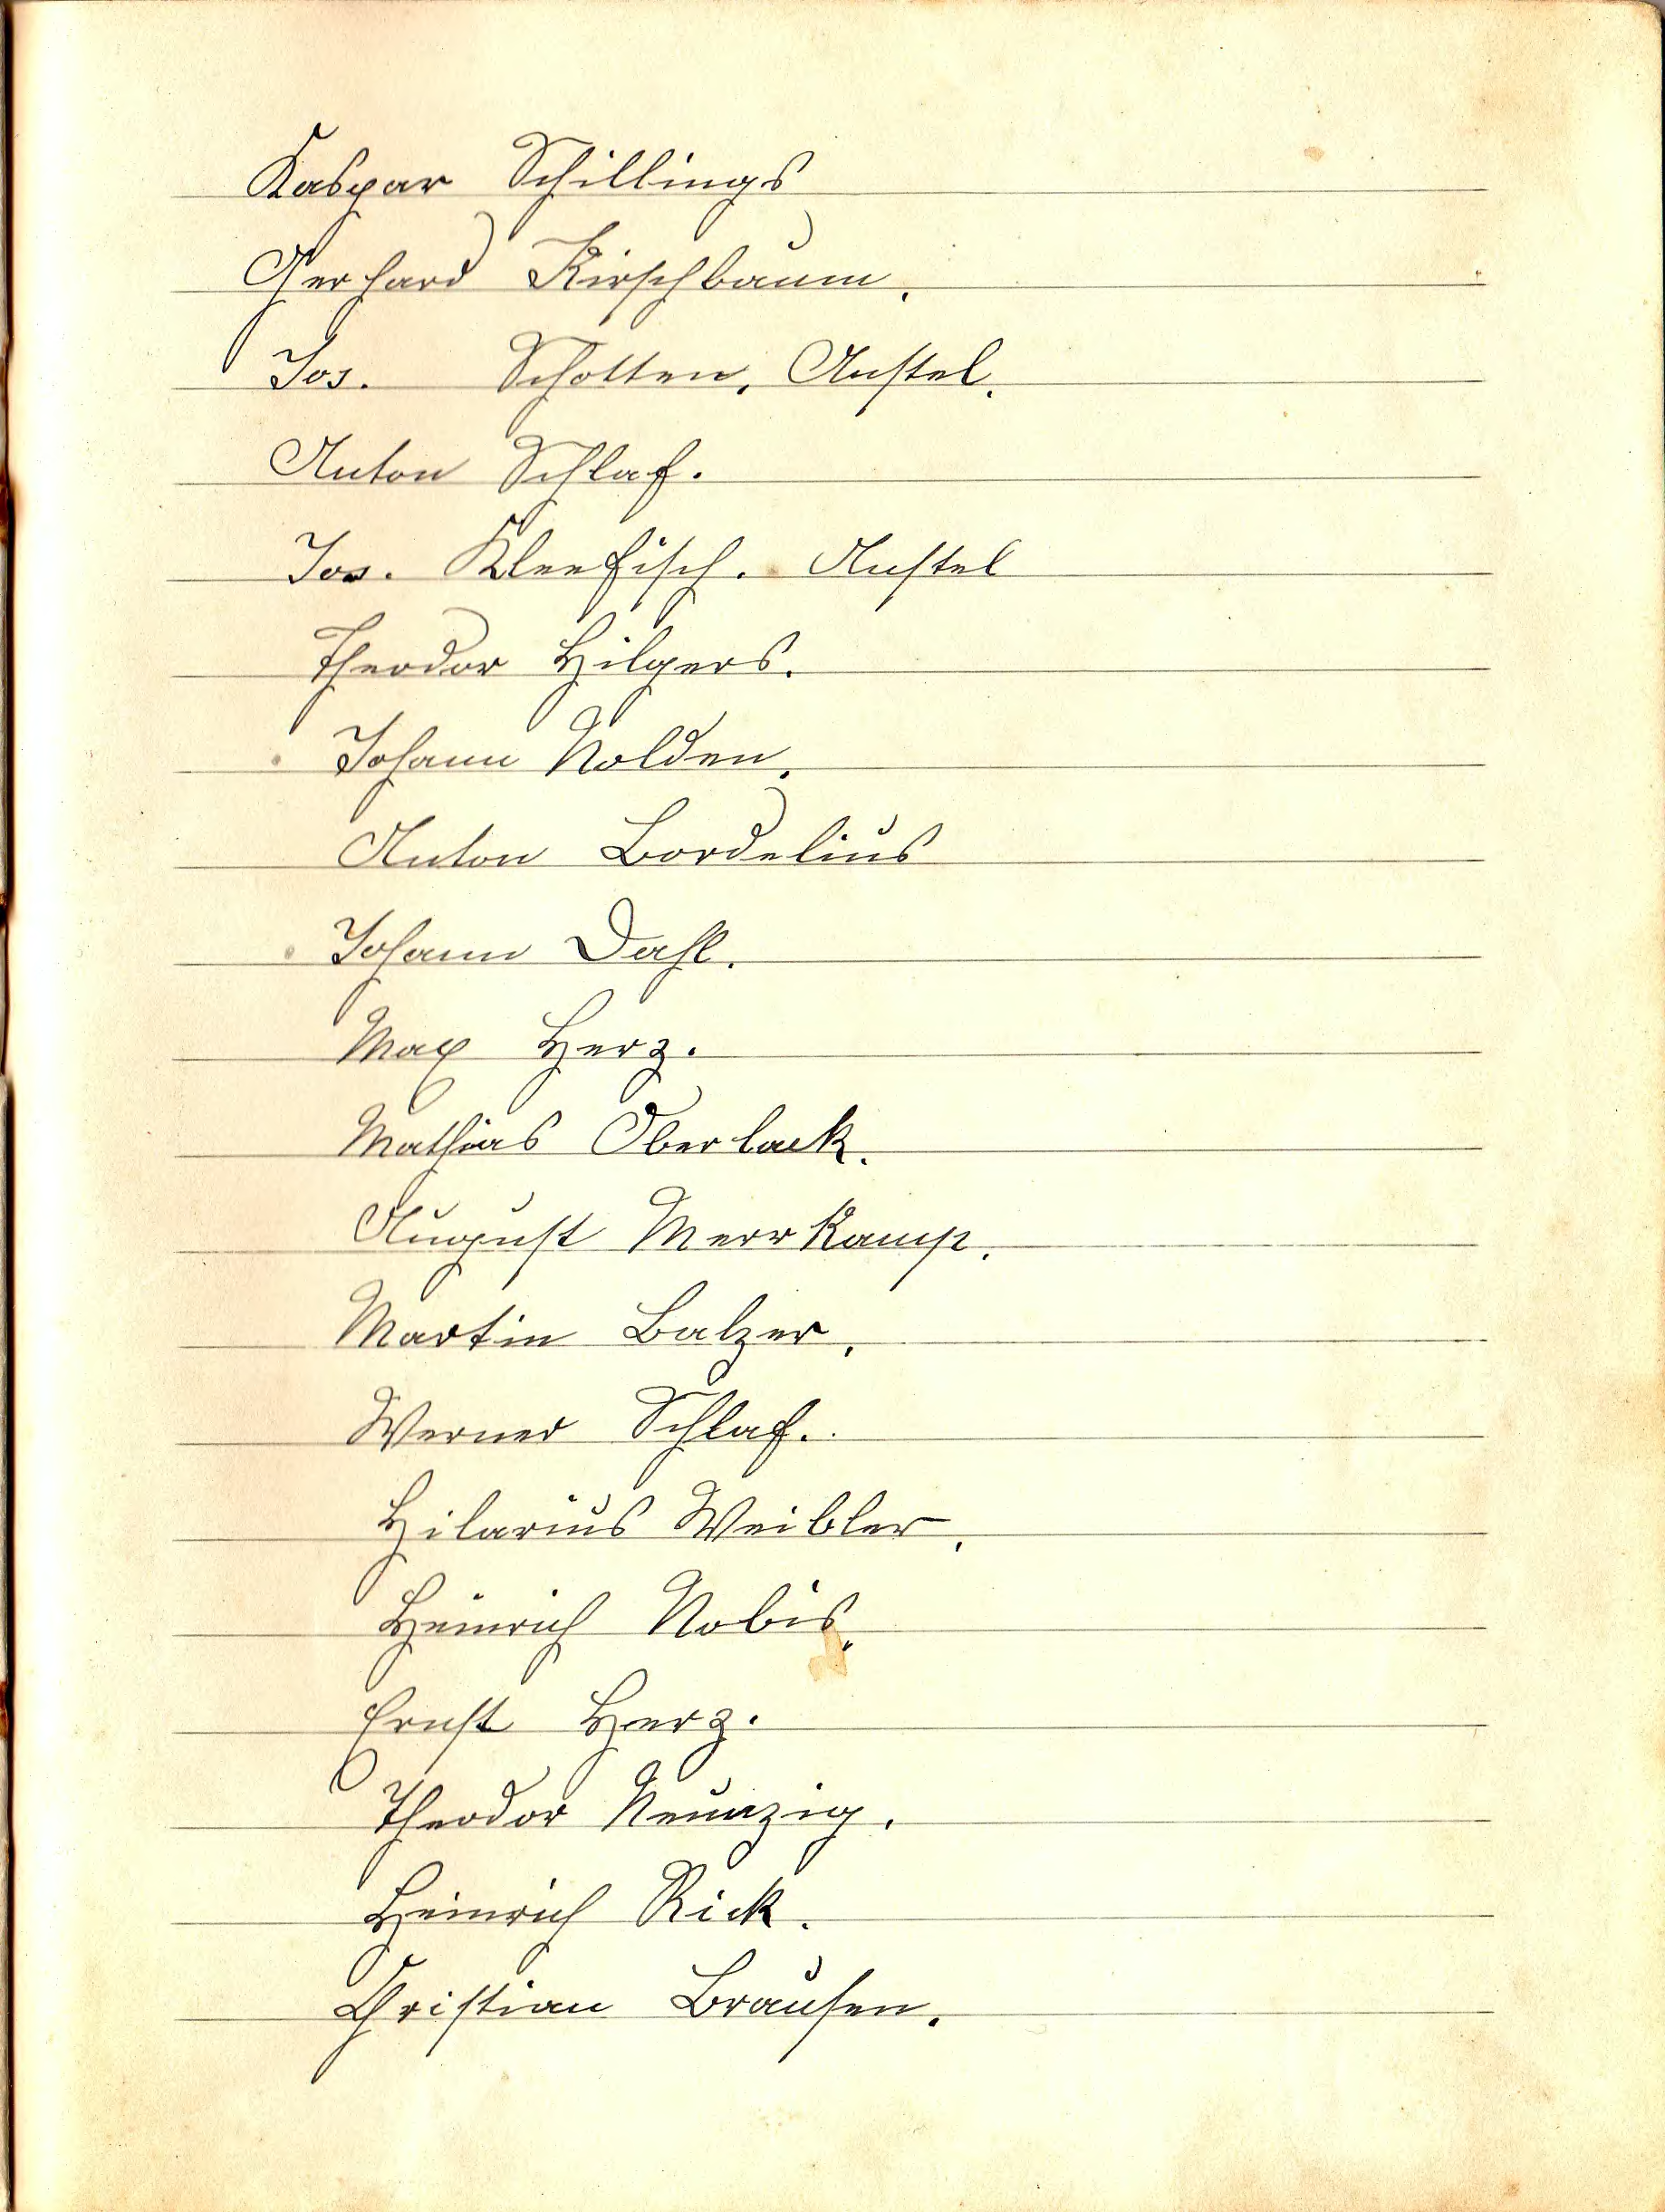 Kaspar Schillings
Gerhard Kirschbaum.
Jos. Schotten. Anstel.
Anton Schlaf.
Jos. Kleefisch. Anstel
Theodor Hilgers.
Johann Nolden.
Anton Bordelius
Johann Dahl.
Max Herz.
Mathias Oberlack.
August Merrkamp.
Martin Balzer.
Werner Schlaf.
Hilarius Weibler.
Heinrich Nobis.
Ernst Herz.
Theodor Neunzig.
Heinrich Rick.
Christian Brausen.